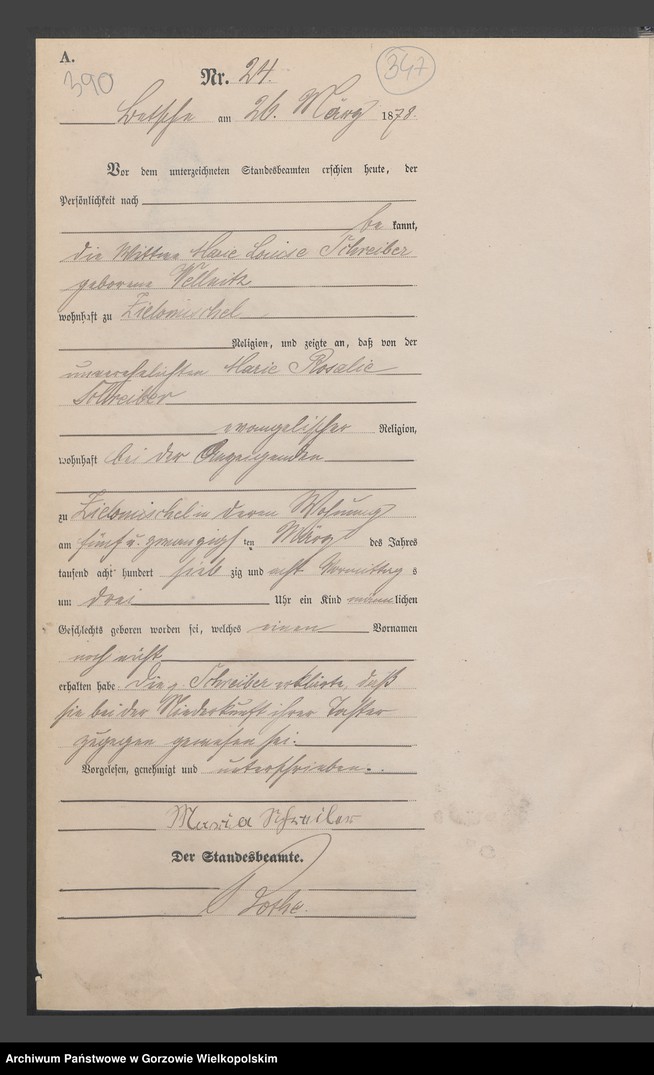 A.
390
Nr. 24.
347
Betsche am 26. März 1878.
Vor dem unterzeichneten Standesbeamten erschien heute, der
Persönlichkeit nach
bekannt,
die Wittwe Marie Louise Schreiber
geborene Wellnitz
wohnhaft zu Zielomischel
Religion, und zeigte an, daß von der
unverehelichten Marie Rosalie
Schreiber
evangelischer Religion,
wohnhaft bei der Anzeigenden
zu Zielomischel in deren Wohnung
am fünf u. zwanzigsten März des Jahres
tausend acht hundert siebzig und acht Vormittags
um drei Uhr ein Kind männlichen
Geschlechts geboren worden sei, welches einen Vornamen
noch nicht
erhalten habe. Die Schreiber erklärte, daß
sie bei der Niederkunft ihrer Tochter
zugegen gewesen sei.
Vorgelesen, genehmigt und unterschrieben.
Maria Schreiber
Der Standesbeamte.
Archiwum Państwowe w Gorzowie Wielkopolskim